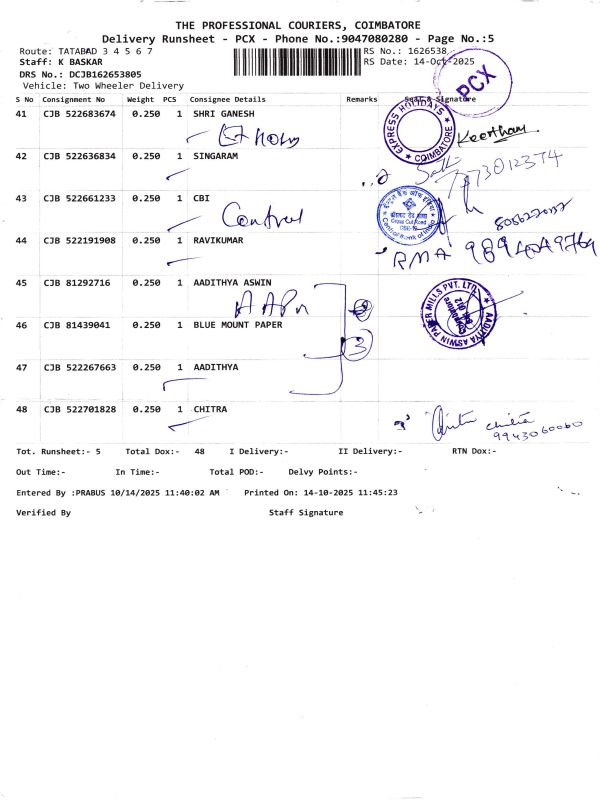 THE PROFESSIONAL COURIERS, COIMBATORE
Delivery Runsheet - PCX - Phone No.:9047080280 - Page No.:5
Route: TATABAD 3 4 5 6 7
RS No.: 1626538
Staff: K BASKAR
RS Date: 14-Oct-2025
DRS No.: DCJB162653805
Vehicle: Two Wheeler Delivery
PCX
S No Consignment No Weight PCS Consignee Details Remarks Seal & Signature
41 CJB 522683674 0.250 1 SHRI GANESH
EXPRESS HOLIDAYS
COIMBATORE
Keertham
42 CJB 522636834 0.250 1 SINGARAM
43 CJB 522661233 0.250 1 CBI
Central
Cross Cut Road
Central Bank of India
44 CJB 522191908 0.250 1 RAVIKUMAR
RMA 9894049769
45 CJB 81292716 0.250 1 AADITHYA ASWIN
AADITYA ASWIN PAPER MILLS PVT. LTD.
46 CJB 81439041 0.250 1 BLUE MOUNT PAPER
3
47 CJB 522267663 0.250 1 AADITHYA
48 CJB 522701828 0.250 1 CHITRA
chitra
9943060060
Tot. Runsheet:- 5 Total Dox:- 48 I Delivery:- II Delivery:- RTN Dox:-
Out Time:- In Time:- Total POD:- Delvy Points:-
Entered By :PRABUS 10/14/2025 11:40:02 AM Printed On: 14-10-2025 11:45:23
Verified By Staff Signature